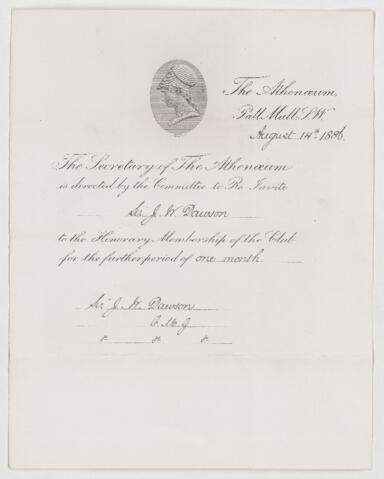 The Athenæum
Pall Mall S.W.
August 14th 1886
The Secretary of The Athenæum
is directed by the Committee to Re Invite
Sir J. W. Dawson
to the Honorary Membership of the Club
for the further period of one month
Sir J. W. Dawson
C. M. G.